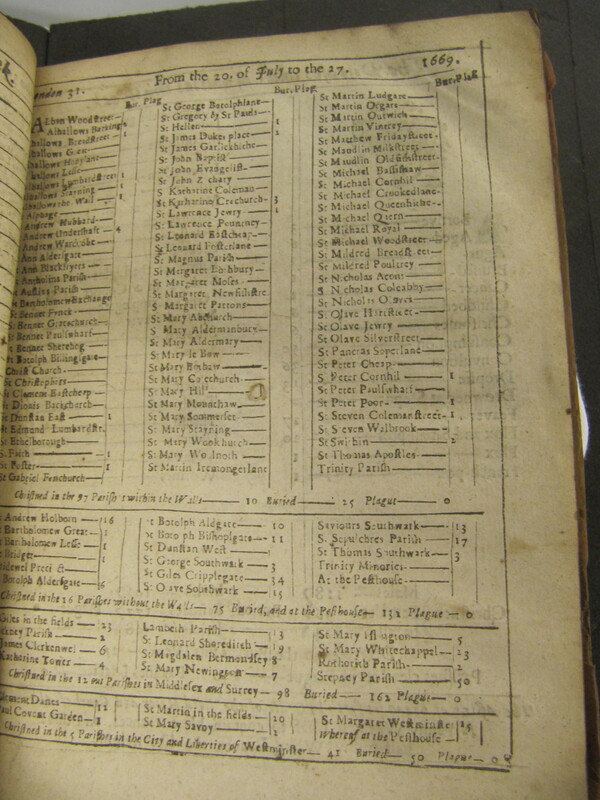 London 31.
From the 20. of July to the 27.
1669.
Bur. Plag
Alban Woodstreet
Alhallows Barking
Alhallows Breadstreet 1
Alhallows Great
Alhallows Honylane
Alhallows Lesse 1
Alhallows Lumbardstreet 1
Alhallows Staining 1
Alhallows the Wall 1
Alphage
Andrew Hubbard
Andrew Undershaft 4
Andrew Wardrobe
Ann Aldersgate
Ann Blackfryers
Antholins Parish
Austins Parish
Bartholomew Exchange
Bennet Fynck
St Bennet Gracechurch
St Bennet Paulswharf
St Bennet Sherehog
St Botolph Billingsgate
Christ Church
St Christophers
St Clement Eastcheap
St Dionis Backchurch
St Dunstan East 1
St Edmund Lumbardstr.
St Ethelborough
S. Faith 1
St Foster 1
St Gabriel Fenchurch
Bur. Plag.
St George Botolphlane
St Gregory by St Pauls 1
St Hellen
St James Dukes place 2
St James Garlickhithe
St John Baptist
St John Evangelist
St John Zachary
S Katharine Coleman
St Katharine Creechurch 3
St Lawrence Jewry 1
St Laurence Pountney
St Leonard Eastcheap
St Leonard Fosterlane
St Magnus Parish
St Margaret Lothbury
St Margaret Moses
St Margaret Newfishstre.
S Margaret Pattons
St Mary Abchurch
St Mary Aldermanbury
St Mary Aldermary
St Mary le Bow
St Mary Bothaw
St Mary Colechurch
St Mary Hill
St Mary Mounthaw
St Mary Sommerset
St Mary Stayning
St Mary Woolchurch
St Mary Woolnoth
St Martin Iremongerlane
Bur. Plag
St Martin Ludgate
St Martin Orgars
St Martin Outwich
St Martin Vintrey
St Matthew Fridaystreet
St Maudlin Milkstreet
St Maudlin Oldfishstreet
St Michael Bassishaw
St Michael Cornhil
St Michael Crookedlane
St Michael Queenhithe
St Michael Quern
St Michael Royal
St Michael Woodstreet
St Mildred Breadstreet
St Mildred Poultrey
St Nicholas Acons
S Nicholas Coleabby
St Nicholas Olaves
St Olave Hartstreet
St Olave Jewry
St Olave Silverstreet
St Pancras Soperlane
St Peter Cheap
S Peter Cornhil 1
St Peter Paulswharf
St Peter Poor 1
St Steven Colemanstreet 1
St Steven Walbrook
St Swithin 2
St Thomas Apostles
Trinity Parish
Christned in the 97 Parishes within the Walls 10 Buried 25 Plague 0
St Andrew Holborn 26
Bartholomew Great 1
Bartholomew Lesse 1
Bridget
Bridewel Preci ct
Botolph Aldersgate 6
St Botolph Aldgate 10
St Botolph Bishopsgate 11
St Dunstan West
St George Southwark 3
St Giles Cripplegate 34
St Olave Southwark 15
Saviours Southwark 13
S. Sepulchres Parish 17
St Thomas Southwark 3
Trinity Minories
At the Pesthouse
Christned in the 16 Parishes without the Walls 75 Buried, and at the Pesthouse 132 Plague 0
Giles in the fields 23
Hackney Parish 2
James Clerkenwel 6
Katharine Tower 4
Lambeth Parish 13
St Leonard Shoreditch 19
St Magdalen Bermondsey 8
St Mary Newington 7
St Mary Islington 5
St Mary Whitechappel 23
Rothorith Parish 2
Stepney Parish 50
Christned in the 12 out Parishes in Middlesex and Surrey 98 Buried 162 Plague 0
Clement Danes 12
Paul Covent Garden 1
St Martin in the fields 20
St Mary Savoy 1
St Margaret Westminster 15
Whereof at the Pesthouse
Christned in the 5 Parishes in the City and Liberties of Westminster 41 Buried 50 Plague 0